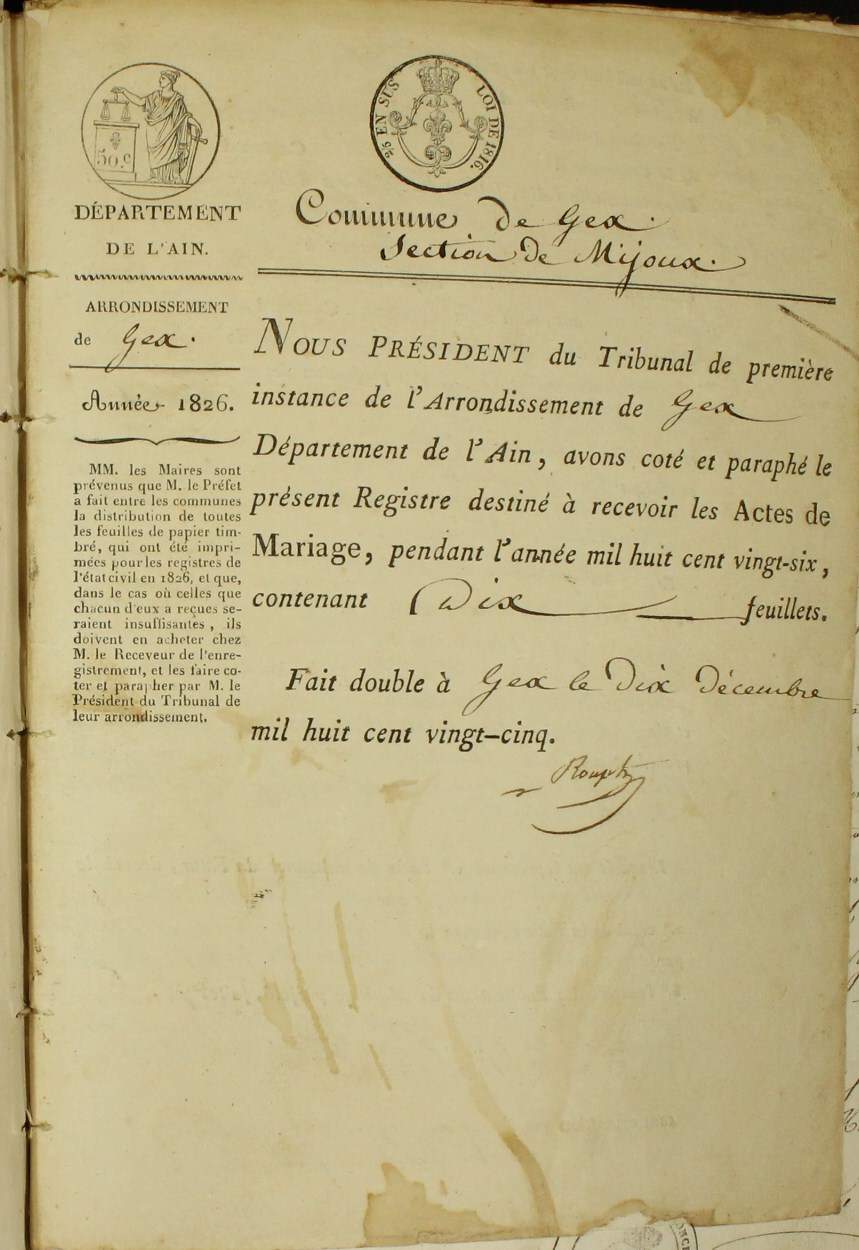 50.c
2/5 EN SUS LOI DE 1816.
DÉPARTEMENT
DE L'AIN.
Commune de Gex.
Section de Mijoux.
ARRONDISSEMENT
de Gex.
Année 1826.
MM. les Maires sont
prévenus que M. le Préfet
a fait entre les communes
la distribution de toutes
les feuilles de papier tim-
bré, qui ont été impri-
mées pour les registres de
l'état civil en 1826, et que,
dans le cas où celles que
chacun d'eux a reçues se-
raient insuffisantes, ils
doivent en acheter chez
M. le Receveur de l'enre-
gistrement, et les faire co-
ter et parapher par M. le
Président du Tribunal de
leur arrondissement.
NOUS PRÉSIDENT du Tribunal de première
instance de l'Arrondissement de Gex
Département de l'Ain, avons coté et paraphé le
présent Registre destiné à recevoir les Actes de
Mariage, pendant l'année mil huit cent vingt-six,
contenant Dix feuillets.
Fait double à Gex le Dix Décembre
mil huit cent vingt-cinq.